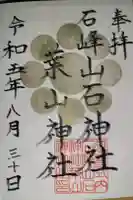 奉拝
石峰山石神社
葉山神社
令和五年八月三十日